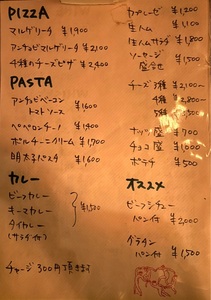 PIZZA
マルゲリータ ¥1,900
アンチョビマルゲリータ ¥2,100
4種のチーズピザ ¥2,400
PASTA
アンチョビベーコン
トマトソース ¥1,600
ペペロンチーノ ¥1,400
ポルチーニクリーム ¥1,700
明太子パスタ ¥1,600
カレー
ビーフカレー
キーマカレー ¥1,500
タイカレー
(サラダ付)
チャージ 300円頂きます
カプレーゼ ¥1,200
生ハム ¥1,100
生ハムサラダ ¥1,800
ソーセージ ¥1,500
盛合せ
チーズ 3種
4種 2,800-
5種
ナッツ 盛 ¥700
チョコ 盛 ¥1,000
ポテサラ ¥500
オススメ
ビーフシチュー
パン付 ¥2,000
グラタン
パン付 ¥1,500